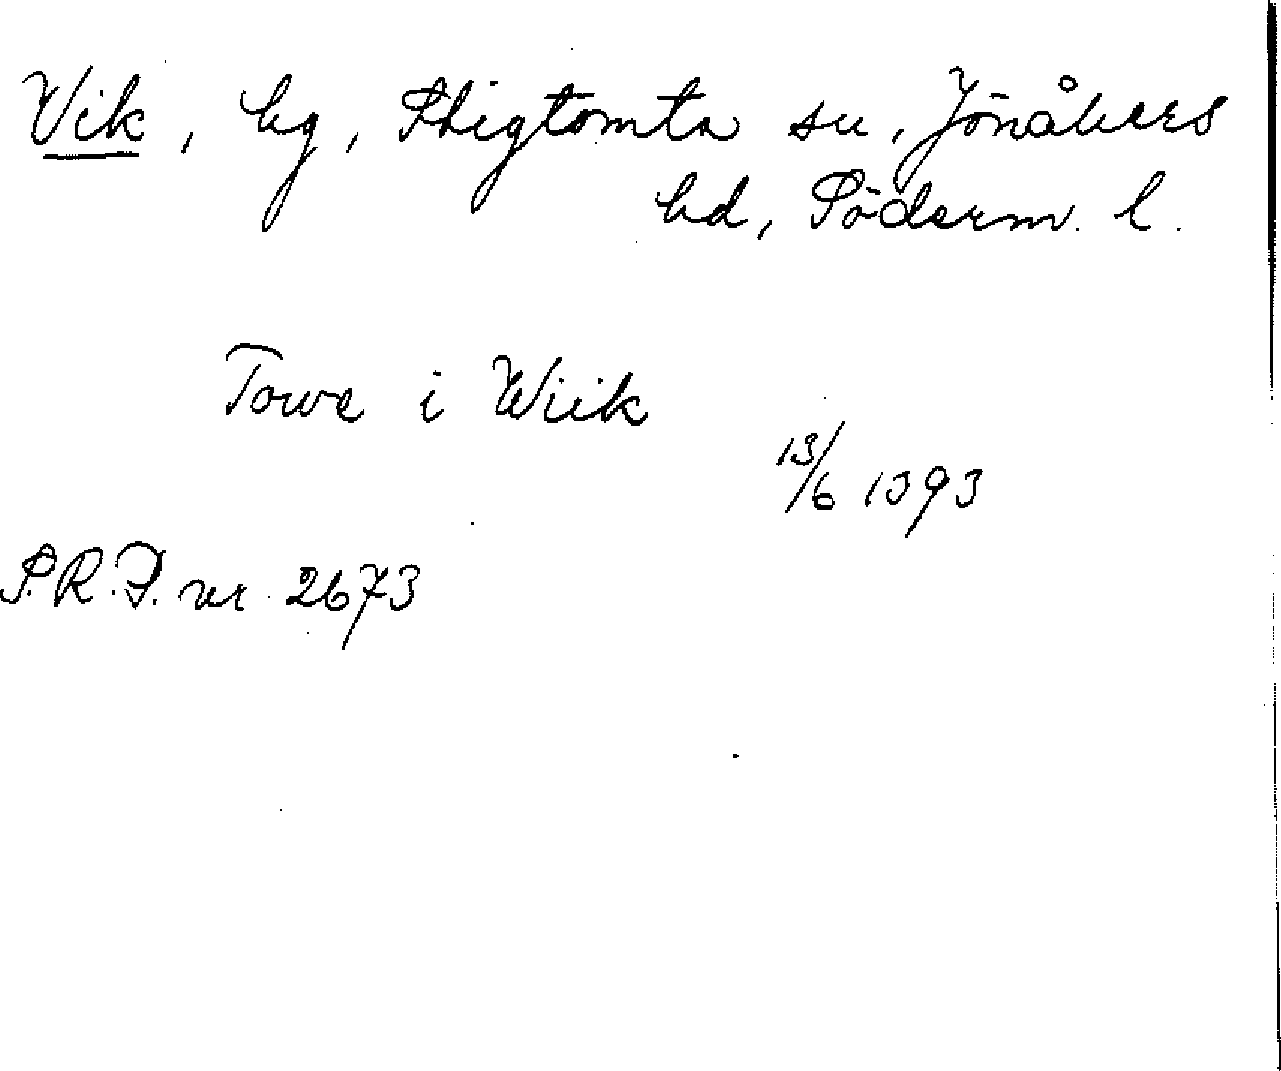 Vik, hg, Stigtomta sn, Jönåkers
hd, Söderm. l.
Towe i Wiik
13/6 1393
S.R.P. nr 2673